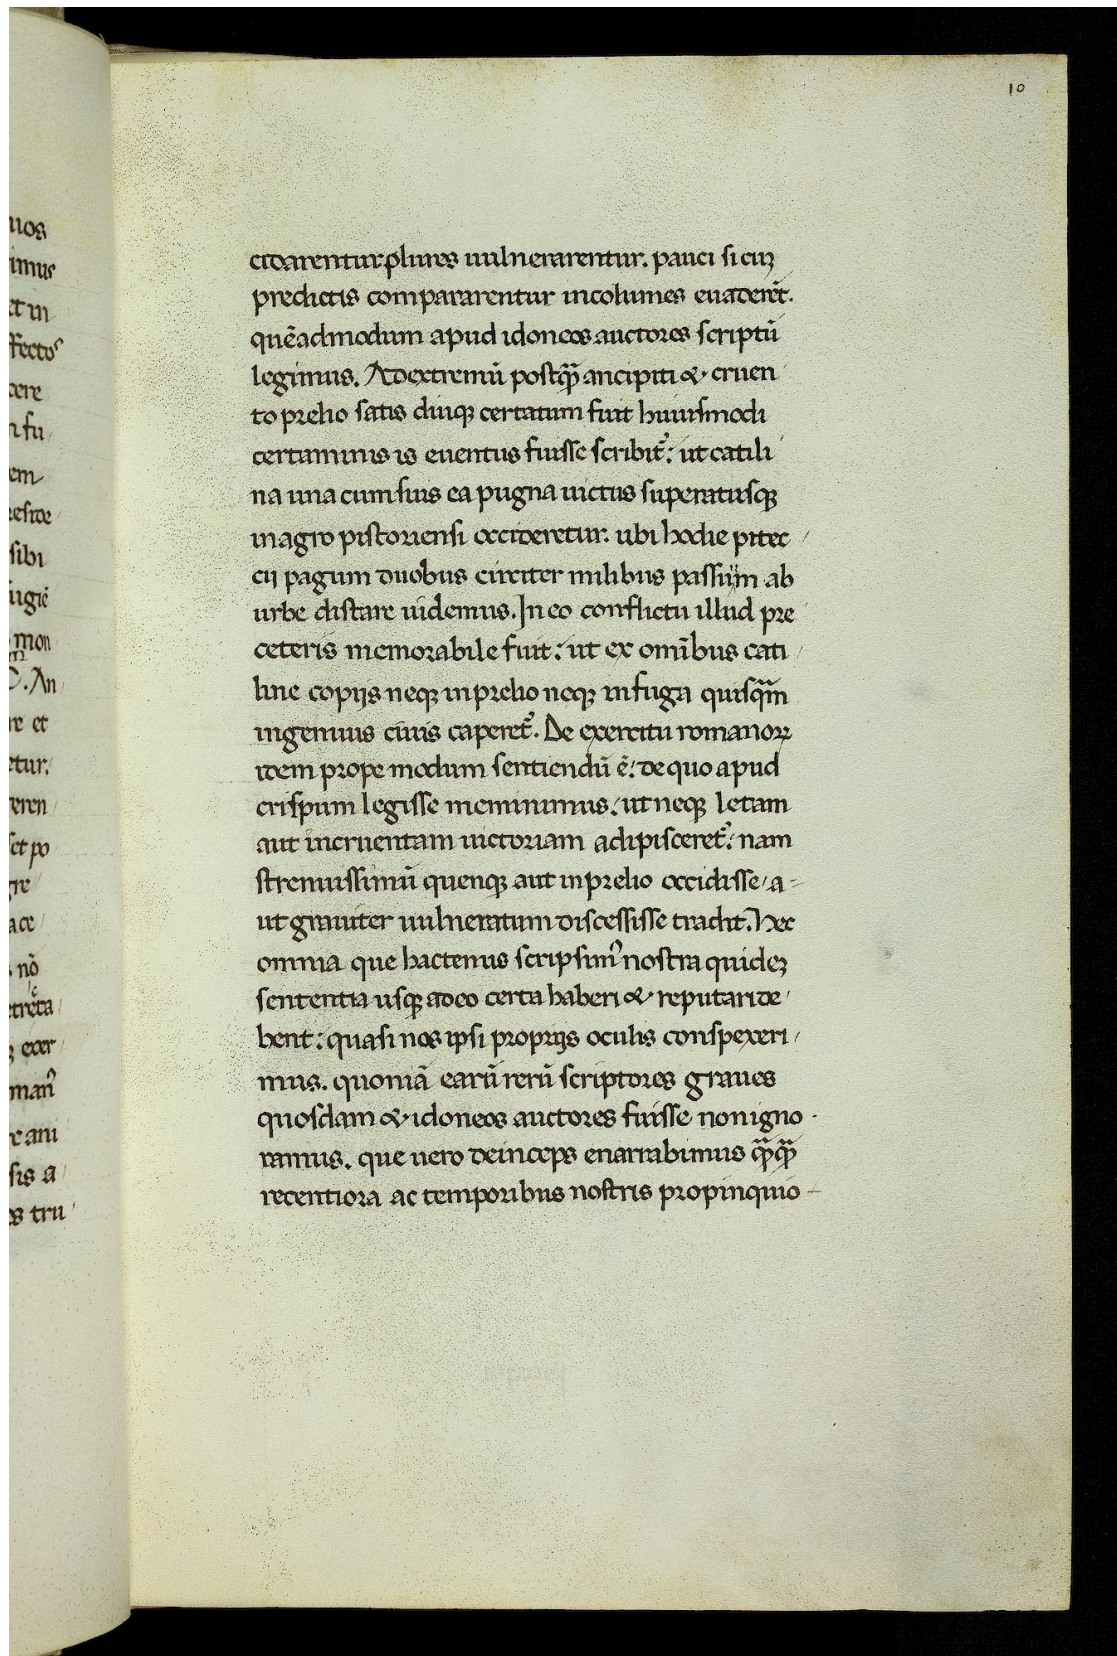 10
cidarentur plures uulnerarentur. pauci si cuʒ
predictis compararentur incolumes euaderēt.
quēadmodum apud idoneos auctores scriptū
legimus. Ad extremū postq̄ ancipiti & cruen
to prelio satis diuq; certatum fuit huiusmodi
certaminis is euentus fuisse scribit᷑: ut catili
na una cum suis ea pugna uictus superatusq;
in agro pistoriensi occideretur. ubi hodie pitec
cij pagum duobus circiter milibus passuum ab
urbe distare uidemus. In eo conflictu illud pre
ceteris memorabile fuit: ut ex omībus cati
line copijs neq; in prelio neq; in fuga quisq̄m
ingenuus ciuis caperet᷑. De exercitu romanoꝝ
idem prope modum sentiendū ē: de quo apud
crispum legisse meminimus: ut neq; letam
aut incruentam uictoriam adipisceret᷑: nam
strenuissimū quenq; aut in prelio occidisse a
ut grauiter uulneratum discessisse tradit. Hec
omnia que hactenus scripsimꝰ nostra quideʒ
sententia usq; adeo certa haberi & reputari de
bent: quasi nos ipsi proprijs oculis conspexeri
mus. quoniā earū rerū scriptores graues
quosdam & idoneos auctores fuisse non igno
ramus. que uero deinceps enarrabimus q̄q̄
recentiora ac temporibus nostris propinquio